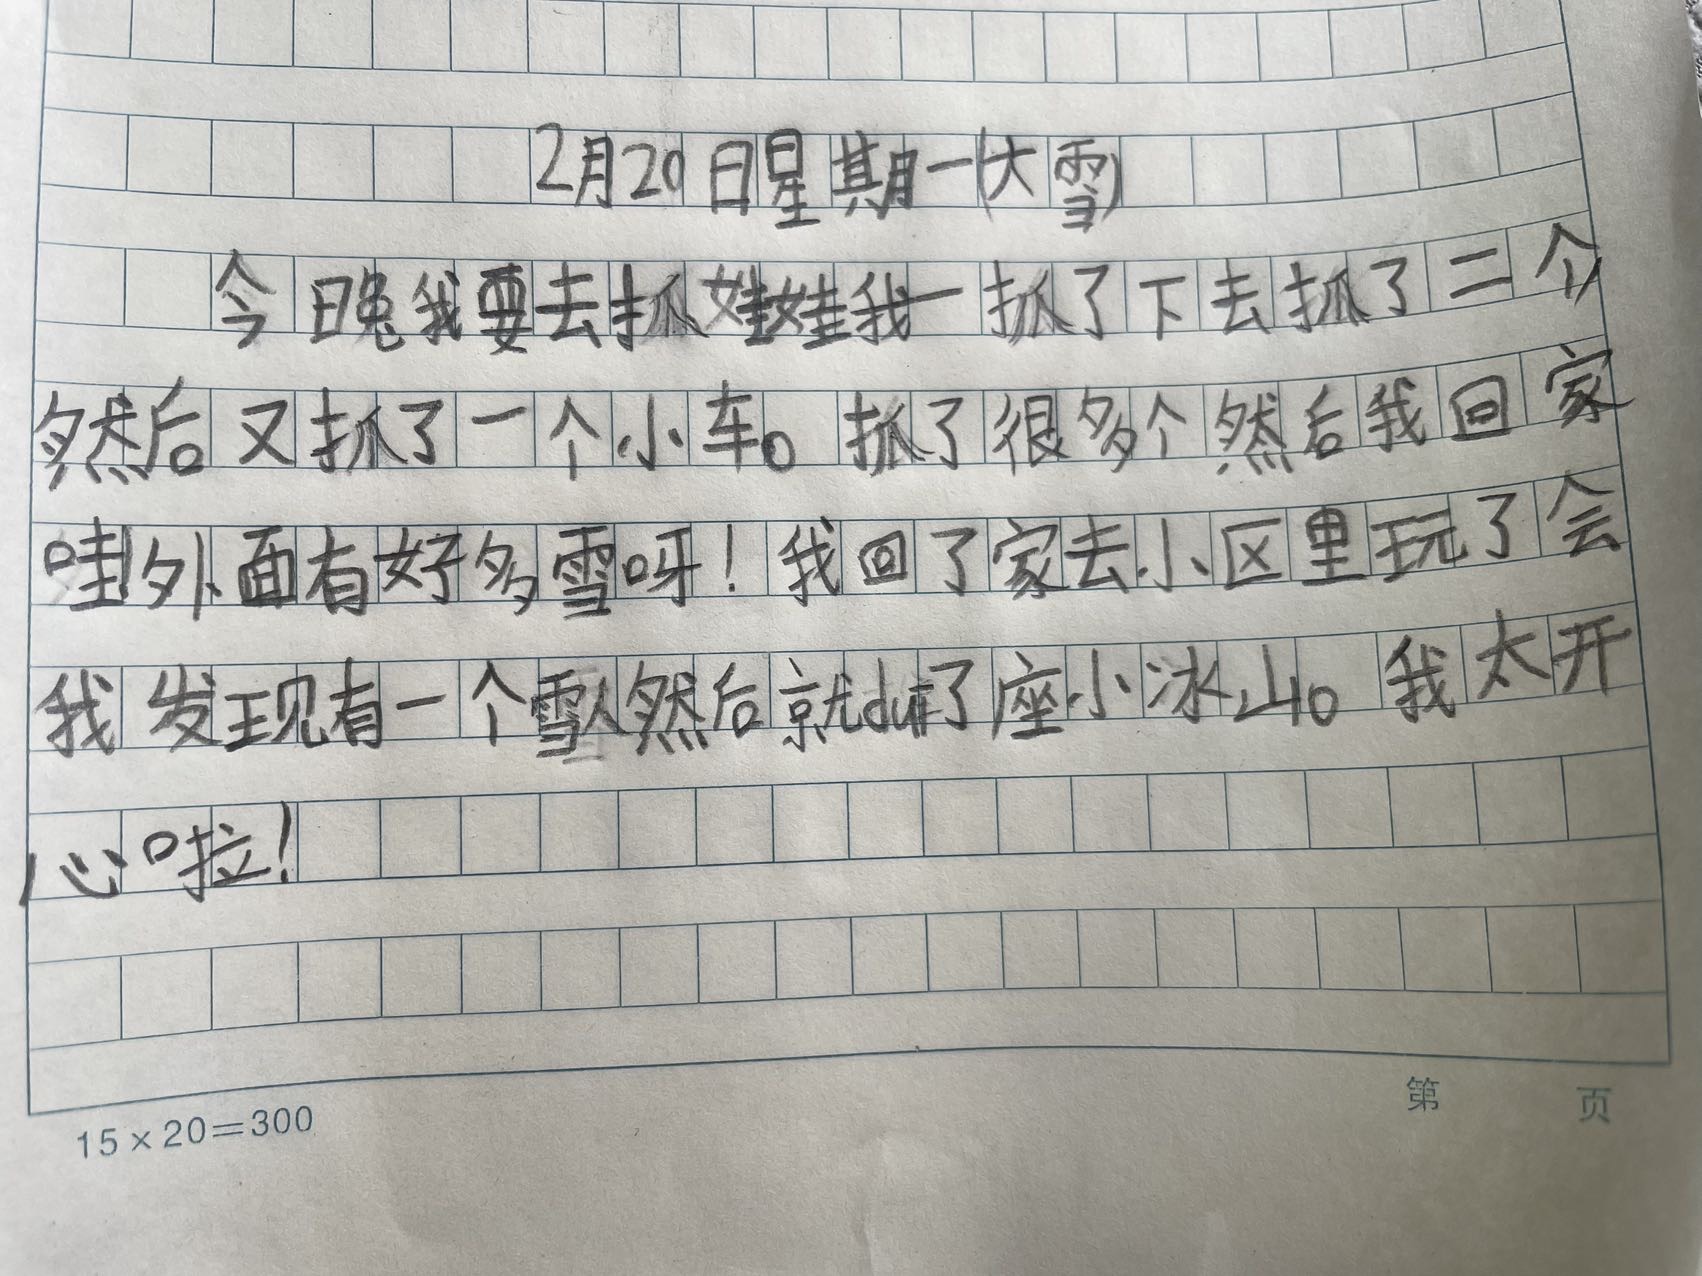 2月20日星期一(大雪)
今晚我要去抓娃娃我一抓了下去抓了二个
然后又抓了一个小车。抓了很多个然后我回家
哇外面有好多雪呀!我回了家去小区里玩了会
我发现有一个雪人然后就dui了座小冰山。我太开
心啦!
15×20=300
第 页